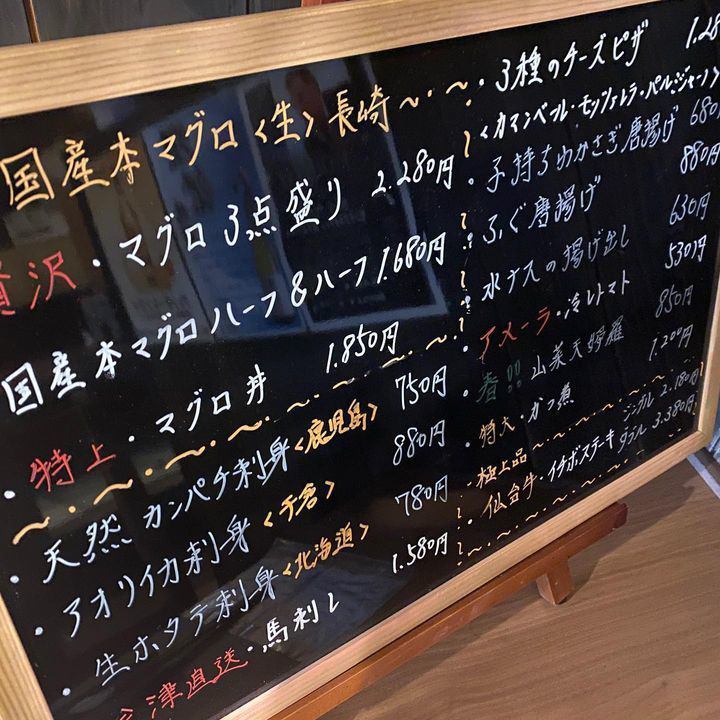 国産本マグロ〈生〉長崎
贅沢・マグロ3点盛り 2.280円
国産本マグロハーフ&ハーフ 1.680円
・特上・マグロ丼 1.850円
・天然カンパチ刺身〈鹿児島〉 750円
・アオリイカ刺身 880円
・生ホタテ刺身〈北海道〉 780円
会津直送・馬刺し 1.580円
・3種のチーズピザ 1.28
〈カマンベール・モッツァレラ・パルジャーノ〉
・子持ちわかさぎ唐揚げ 680
・ふぐ唐揚げ 880円
水ナスの揚げ出し 630円
アメーラ・冷しトマト 530円
春!!山菜天婦羅 850円
・特大・カブ煮 1.200円
・極上品
・仙台牛・イチボステーキ シングル 2.180円
ダブル 3.380円